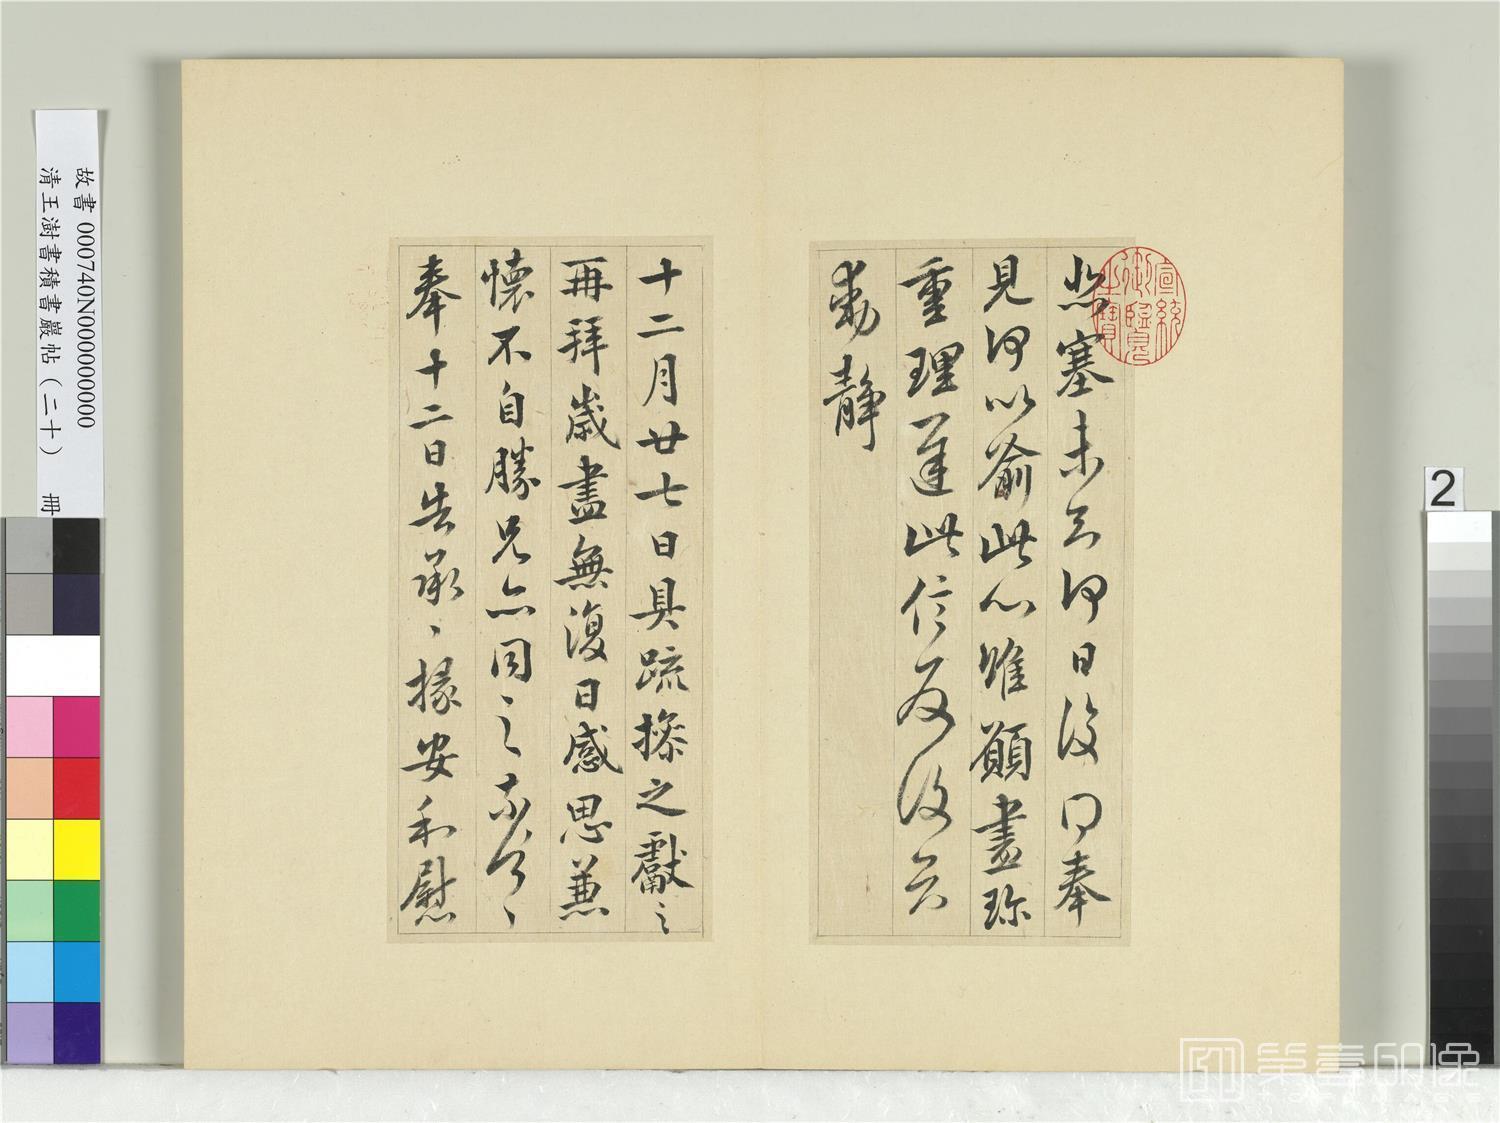 悲塞未知何日復得奉
見何以喻此心唯願盡珍
重理遲此信反復知
動靜
十二月廿七日具疏操之獻之
再拜歲盡無復日感思兼
懷不自勝兄亦同之
奉十二日告承〻掾安和慰
宣統御覽之寶
故書 000740N000000000
清王澍書積書巖帖(二十) 冊
2